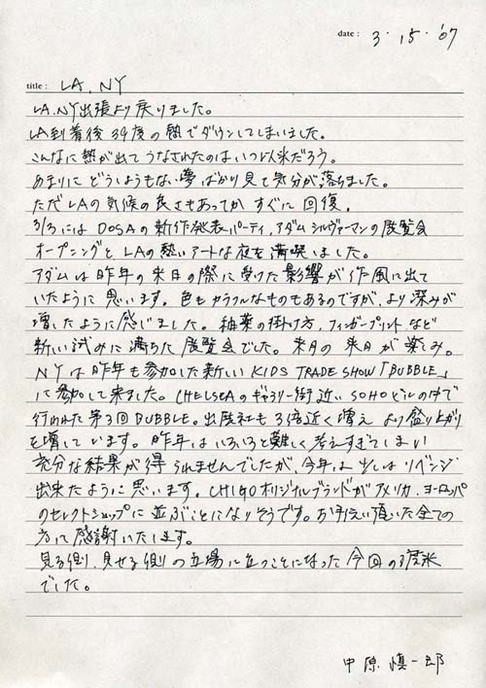 date : 3・15・'07
title : LA. NY
LA.NY出張より戻りました。
LA到着後39度の熱でダウンしてしまいました。
こんなに熱が出てうなされたのはいつ以来だろう。
あまりにどうしようもない夢ばかり見て気分が落ちました。
ただLAの気候の良さもあってか すぐに回復。
3/3にはDOSAの新作発表パーティ、アダム シルヴァーマンの展覧会
オープニングと LAの熱いアートな夜を満喫しました。
アダムは昨年の来日の際に受けた影響が作風に出て
いたように思います。色もカラフルなものもあるのですが、より深みが
増したように感じました。釉薬の掛け方、フィンガープリントなど
新しい試みに満ちた展覧会でした。来月の来日が楽しみ。
NYは昨年も参加した新しいKIDS TRADE SHOW「BUBBLE」
に参加して来ました。CHELSEAのギャラリー街近いSOHOビルの中で
行われた第3回BUBBLE。出展社も3倍近く増え より盛り上がり
を増しています。昨年はいろいろと難しく考えすぎてしまい
充分な結果が得られませんでしたが、今年は少しはリベンジ
出来たように思います。CHIGOオリジナルブランドがアメリカ、ヨーロッパ
のセレクトショップに並ぶことになりそうです。お手伝い頂いた全ての
方に感謝いたします。
見る側、見せる側の立場に立つことになった今回の渡米
でした。
中原慎一郎